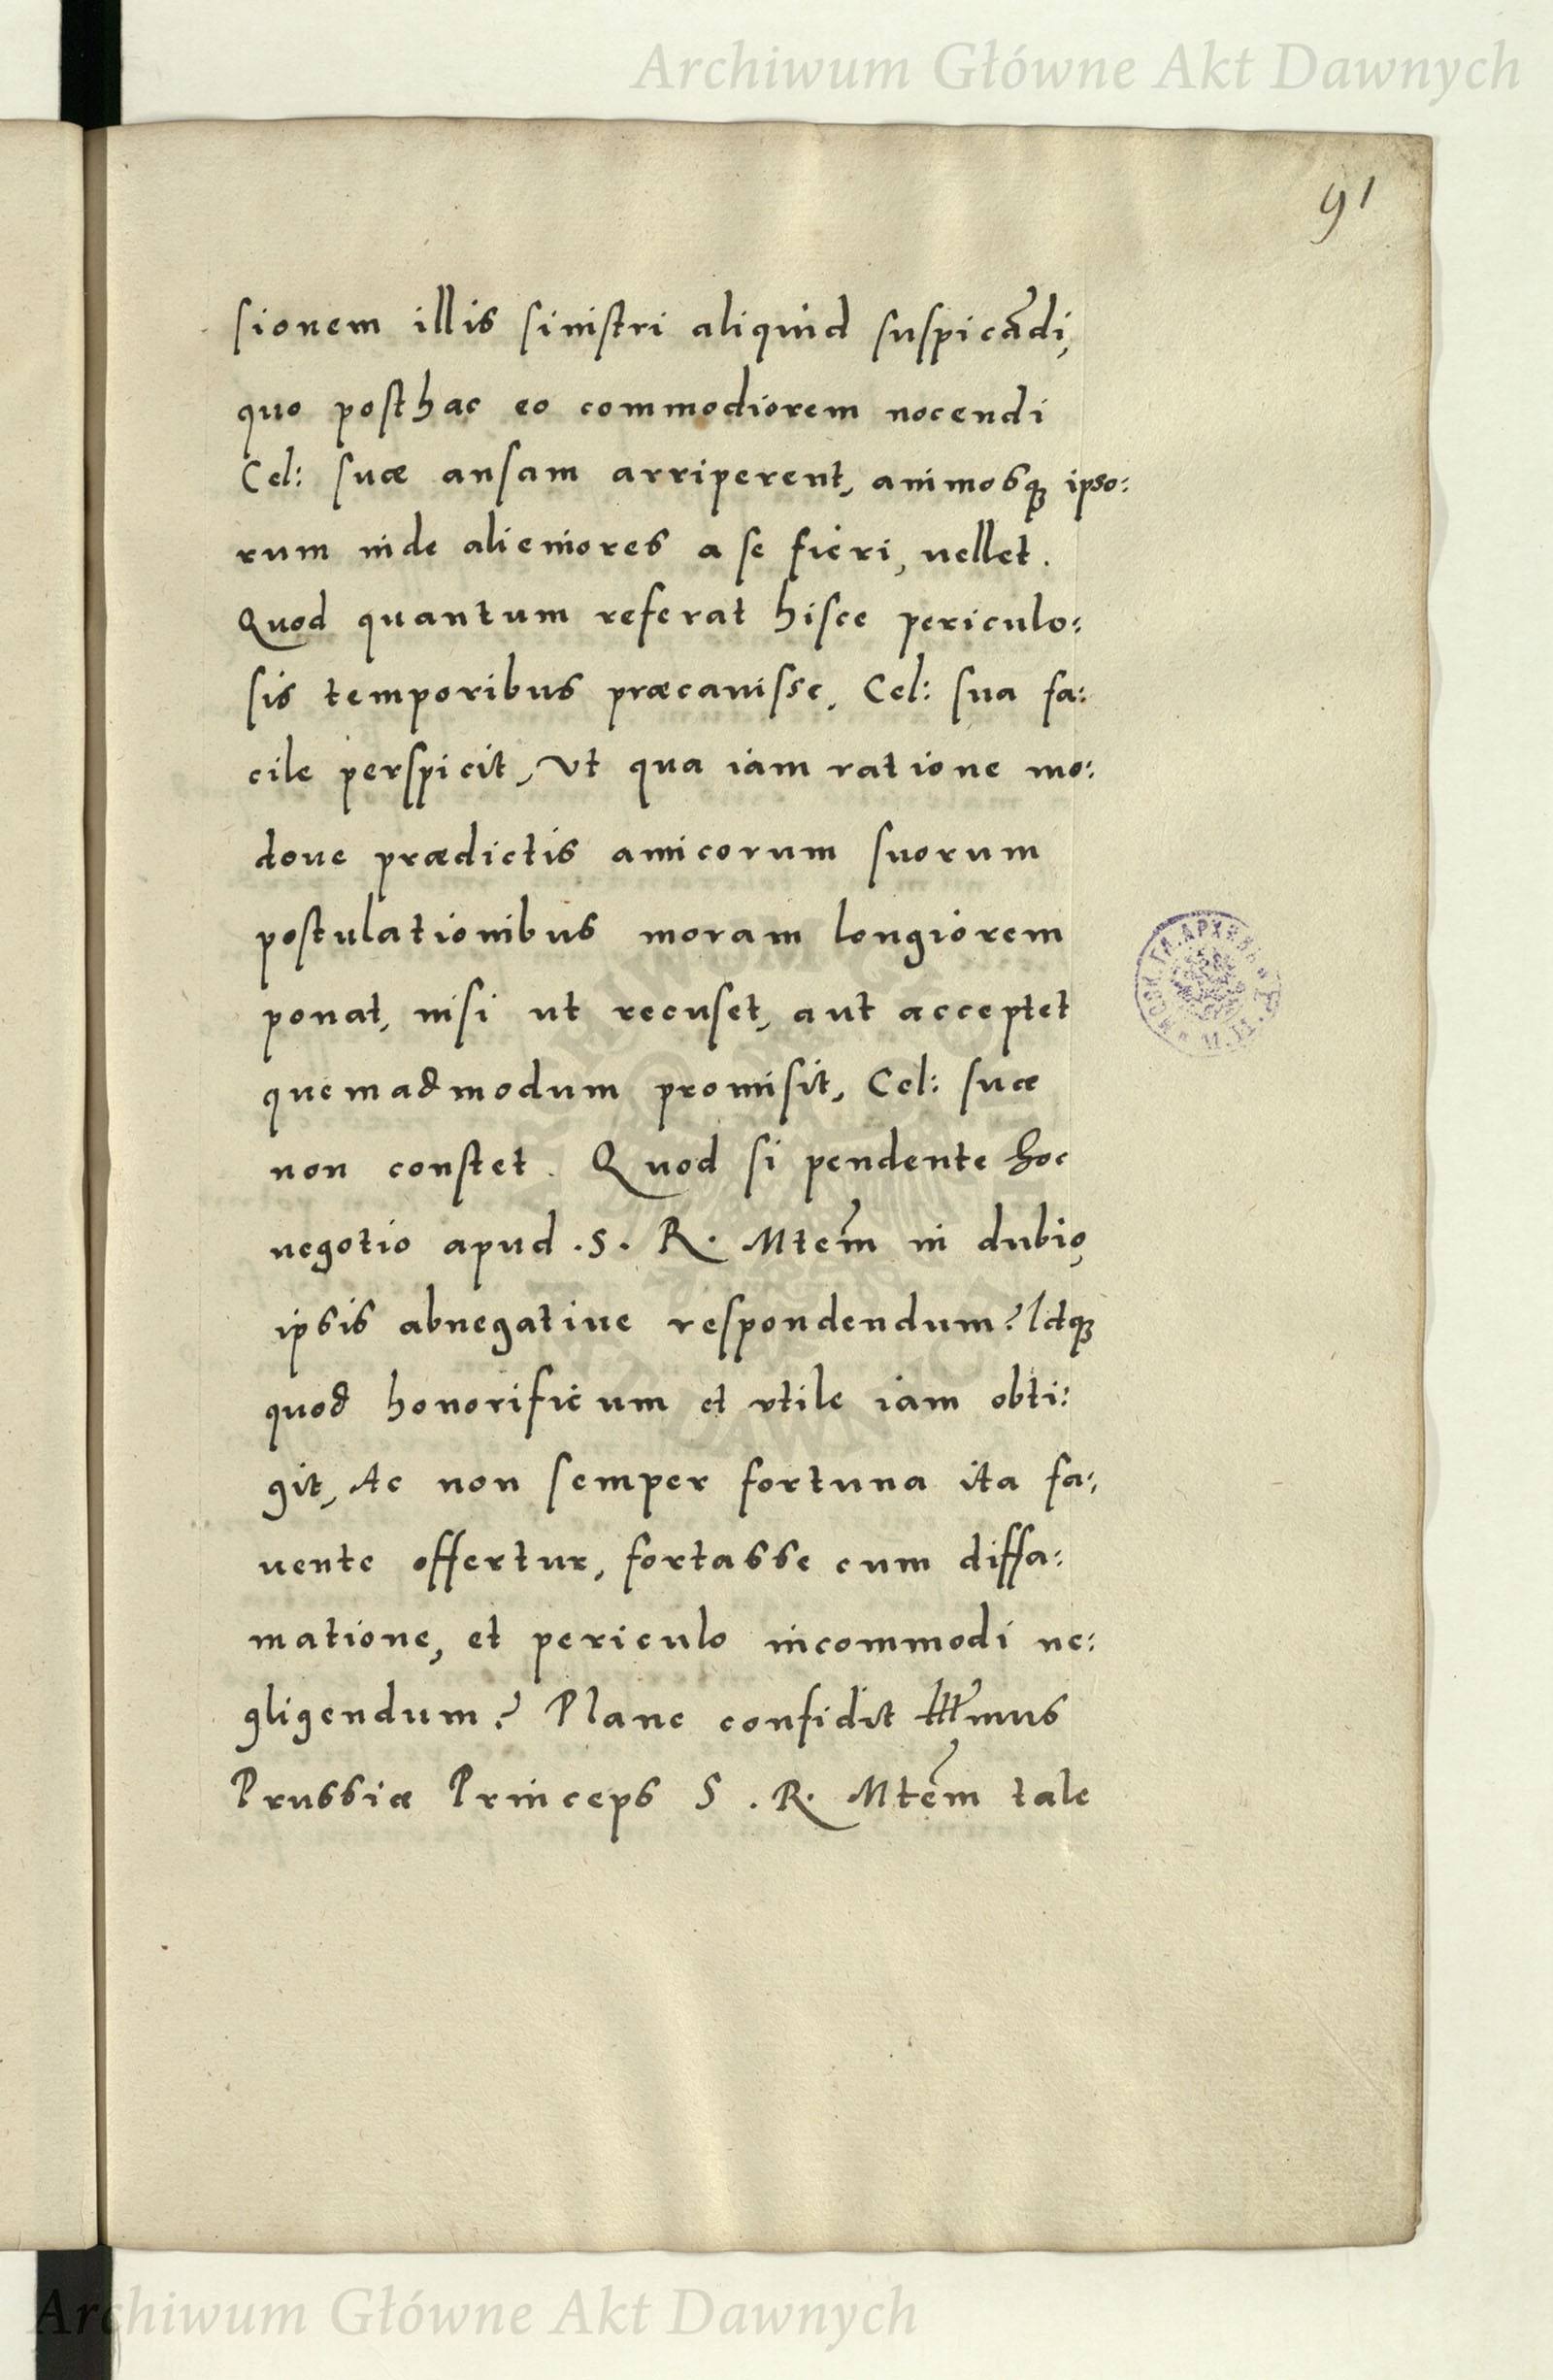 Archiwum Główne Akt Dawnych
91
sionem illis sinistri aliquid suspicãdi,
quo posthac eo commodiorem nocendi
Cel: suæ ansam arriperent, animosqꝫ ipso:
rum inde alieniores a se fieri, uellet.
Quod quantum referat hisce periculo:
sis temporibus præcauisse, Cel: sua fa:
cile perspicit, Vt qua iam ratione mo:
doue prædictis amicorum suorum
postulationibus moram longiorem
ponat, nisi ut recuset, aut acceptet
quemadmodum promisit, Cel: suæ
non constet. Quod si pendente hoc
negotio apud .S. R. Mtem̃ in dubio,
ipsis abnegatiue respondendum? Idqꝫ
quod honorificum et vtile iam obti:
git, Ac non semper fortuna ita fa:
uente offertur, fortasse cum diffa:
matione, et periculo incommodi ne:
gligendum? Plane confidit Illmus
Prussiæ Princeps S. R. Mtem̃ tale
Archiwum Główne Akt Dawnych